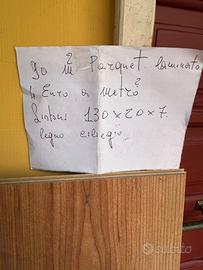 30 m² Parquet laminato
4 Euro a metro²
130x20x7.
legno ciliegio
subito